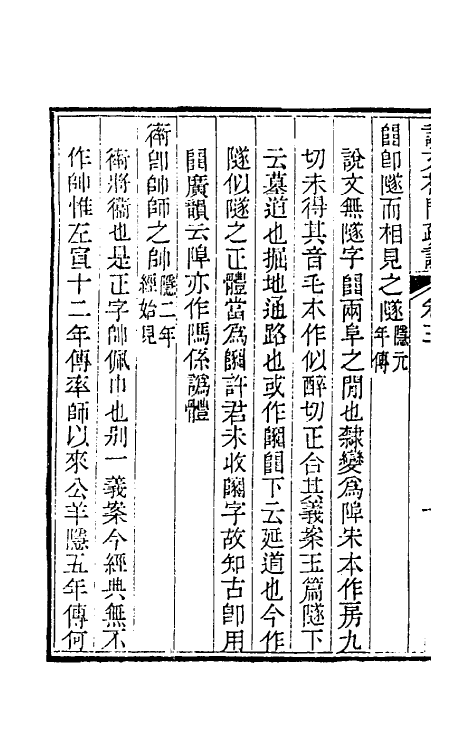 𨺅卽隧而相見之隧隱元年傳
說文無隧字𨺅兩阜之閒也隸變爲䧙朱本作房九
切未得其音毛本作似醉切正合其義案玉篇隧下
云墓道也掘地通路也或作𨽵𨺅下云延道也今作
隧似隧之正體當爲𨽵許君未收𨽵字故知古卽用
𨺅廣韻云䧙亦作隖係譌體
衛卽帥師之帥隱二年經始見
衛將衞也是正字帥佩巾也别一義案今經典無不
作帥惟左宣十二年傳率師以來公羊隱五年傳何